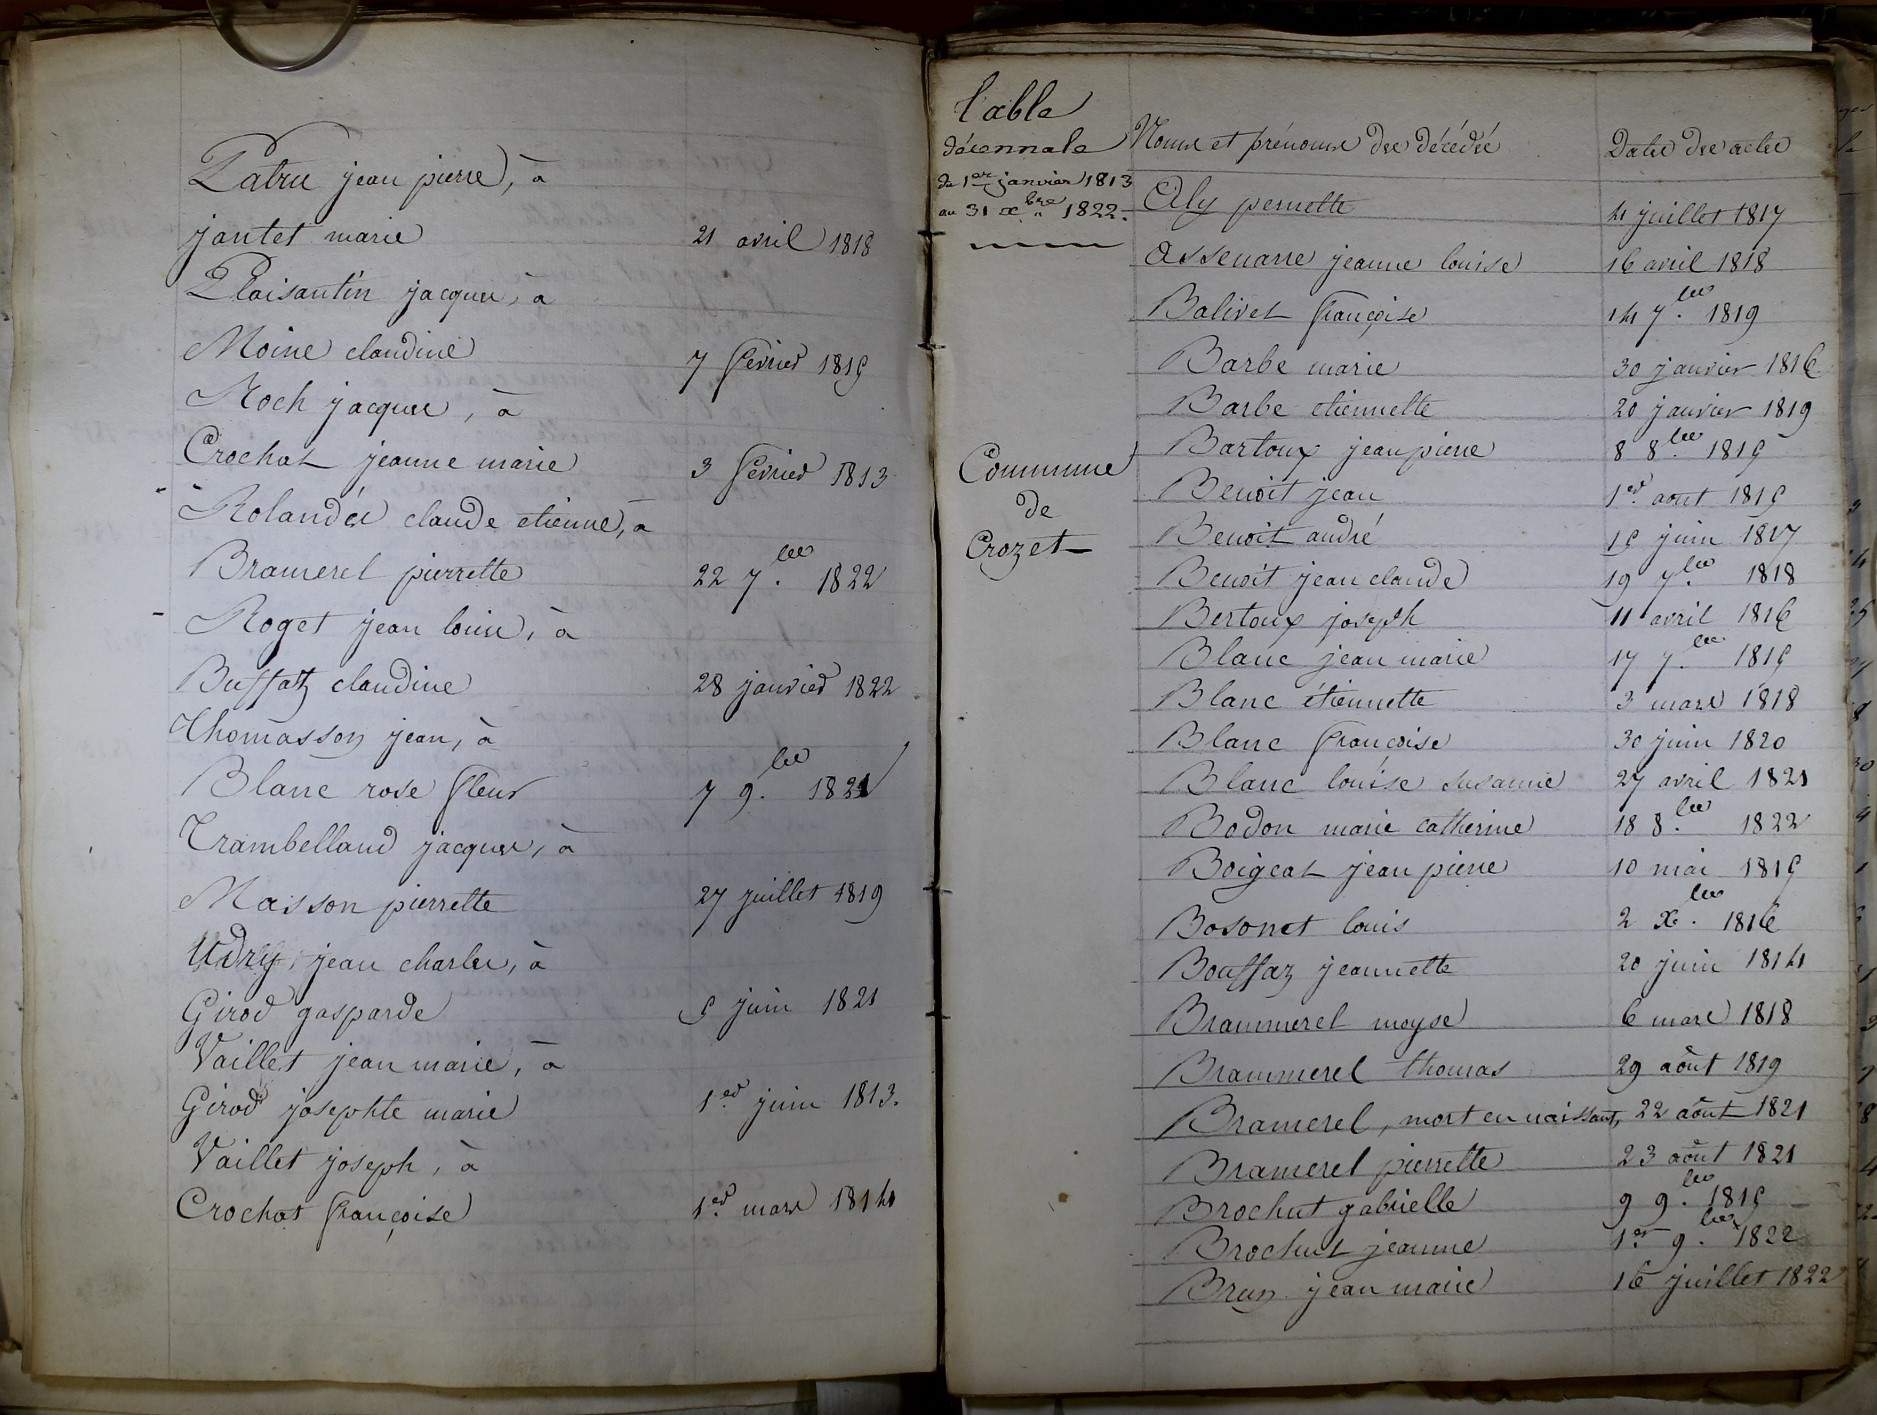 Patru jean pierre, à
jantet marie 21 avril 1818
Plaisantin jacques, à
Moine claudine 7 fevrier 1819
Roch jacques, à
Crochat jeanne marie 3 fevrier 1813
Rolandéz claude etienne, à
Bramerel pierrette 22 7.bre 1822
Roget jean louis, à
Buffatz claudine 28 janvier 1822
Thomasson jean, à
Blanc rose fleur 7 9.bre 1821
Trambelland jacques, à
Masson pierrette 27 juillet 1819
Udry, jean charles, à
Girod gasparde 5 juin 1821
Vaillet jean marie, à
Girod josephte marie 1.er juin 1813.
Vaillet joseph, à
Crochat françoise 1.er mars 1814
Table
décennale
du 1er janvier 1813
au 31 xbre 1822.
Commune
de
Crozet
Noms et prénoms des décédés Dates des actes
Aly pernette 4 juillet 1817
Assenarre jeanne louise 16 avril 1818
Balivet françoise 14 7.bre 1819
Barbe marie 30 janvier 1816
Barbe etiennette 20 janvier 1819
Bartoux jean pierre 8 8.bre 1815
Benoit jean 1.er aout 1815
Benoit andré 15 juin 1817
Benoit jean claude 19 7.bre 1818
Bertoux joseph 11 avril 1816
Blanc jean marie 17 7.bre 1815
Blanc étiennette 3 mars 1818
Blanc françoise 30 juin 1820
Blanc louise susanne 27 avril 1821
Bodon marie catherine 18 8.bre 1822
Boigeat jean pierre 10 mai 1815
Bosonet louis 2 x.bre 1816
Bouffaz jeannette 20 juin 1814
Brammerel moyse 6 mars 1818
Brammerel thomas 29 août 1819
Bramerel, mort en naissant, 22 août 1821
Bramerel pierrette 23 août 1821
Brochut gabrielle 9 9.bre 1815
Brochut jeanne 1.er 9.bre 1822
Brun jean marie 16 juillet 1822